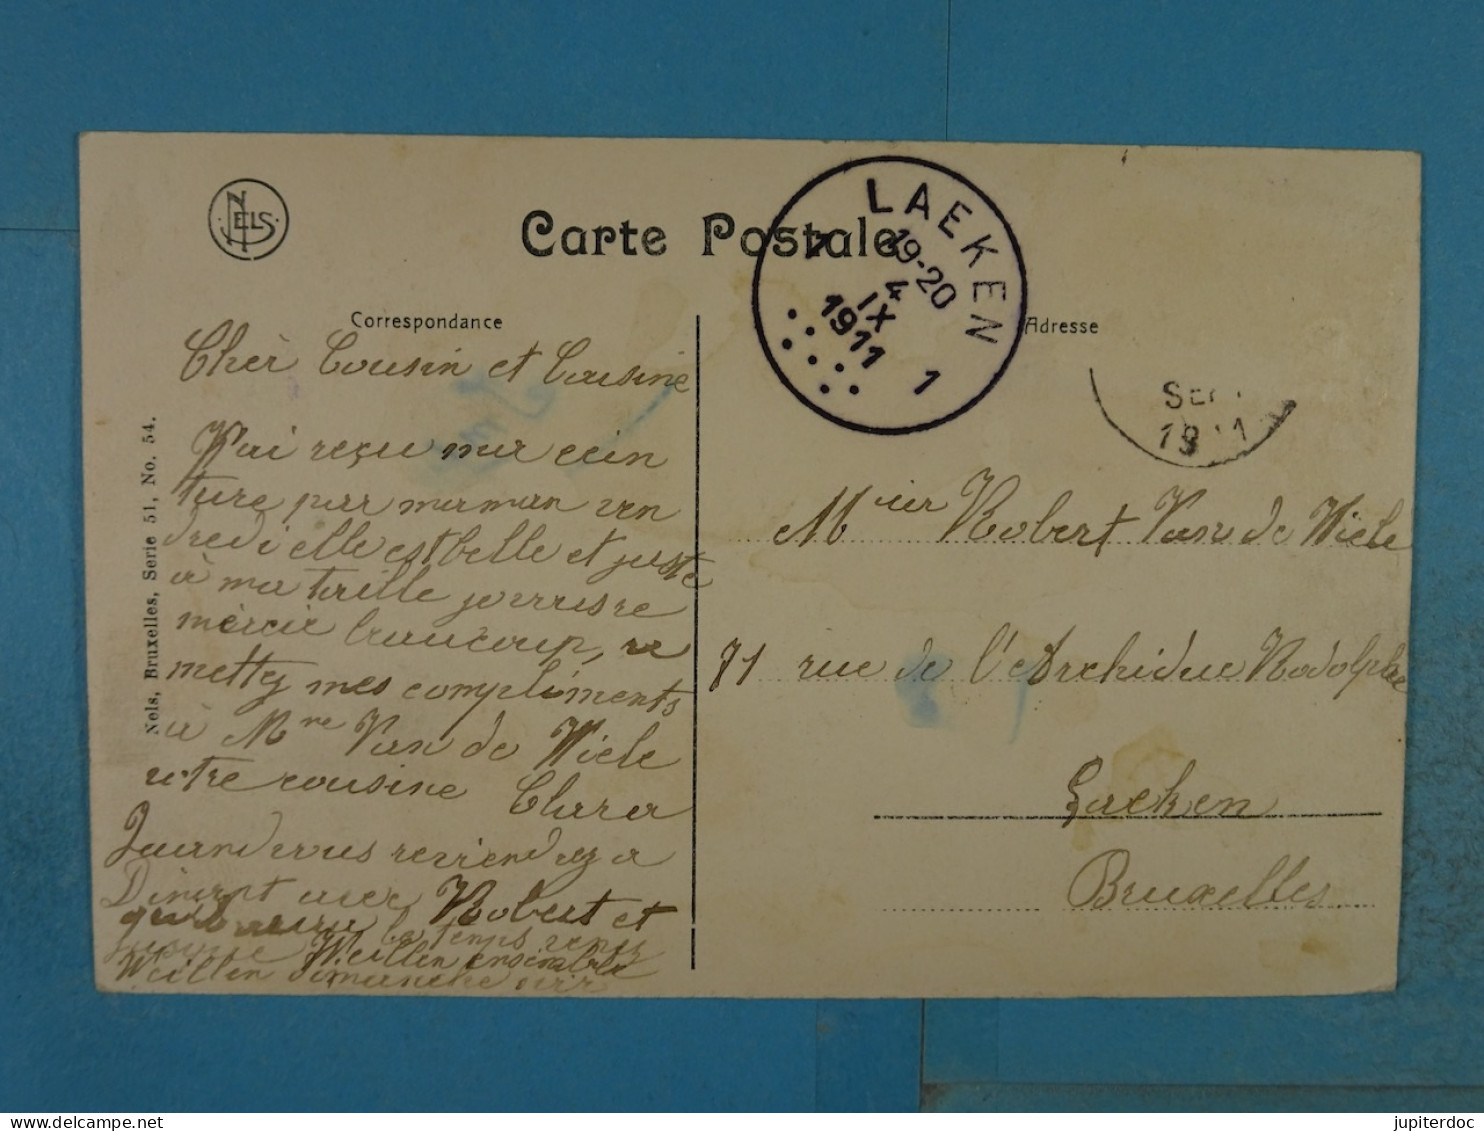 NELS
Carte Postale
LAEKEN
19-20
4
IX
1911
1
1
Correspondance
Adresse
SEP
19 11
Nels, Bruxelles, Serie 51, No. 54.
Cher Cousin et Cousine
J'ai reçu ma cein
ture par maman ven
dredi elle est belle et juste
à ma taille
mercie beaucoup, re
mettez mes compliments
à Mme Van de Wiele
votre cousine Clara
Quand vous reviendrez a
Dinant avec Robert et
le temps
Weillen ensemble
Weillen dimanche
Mcier Robert Van de Wiele
71 rue de l'Archiduc Rodolphe
Laeken
Bruxelles
jupiterdoc